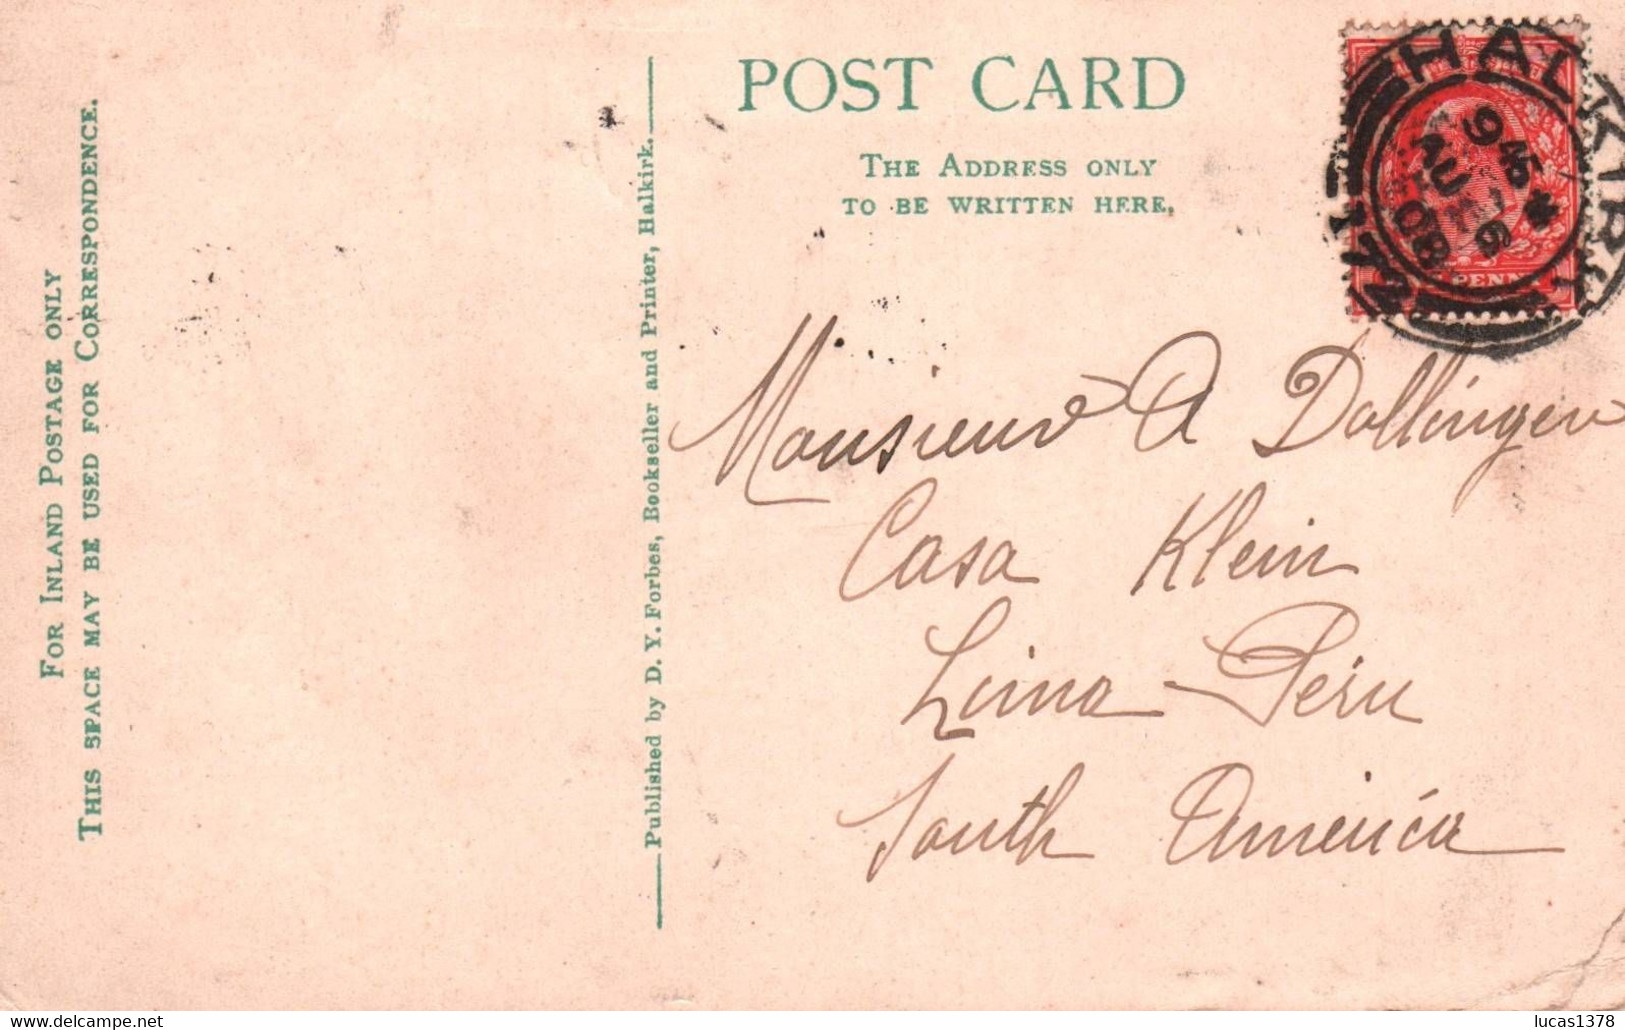 FOR INLAND POSTAGE ONLY
THIS SPACE MAY BE USED FOR CORRESPONDENCE.
Published by D. Y. Forbes, Bookseller and Printer, Halkirk.
POST CARD
THE ADDRESS ONLY
TO BE WRITTEN HERE.
HALKIRK
9 45
AU 6
08
PENNY
Monsieur A Dollinger
Casa Klein
Lima - Péru
South America
lucas1378